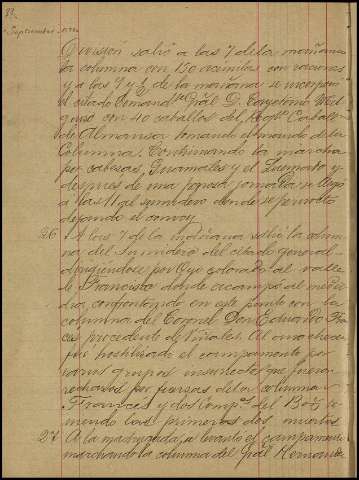 Septiembre
Division salió a las 7 de la mañana
la columna con 150 acémilas con raciones
y a las 9 y ½ de la mañana se incorporó
el citado Comand.te Grāl D. Cayetano
con 40 caballos del Reg.to Caball.a
de Almansa tomando el mando de la
Columna. Continuando la marcha
por Cabezas, Guamales y el
despues de una penosa jornada se llegó
a las 11 al sumidero donde se pernoctó
dejando el convoy
26 A las 7 de la mañana salió la colum-
na del Sumidero del citado General
dirigiéndose por Ojo colorado al valle
de Francisco donde acampó al medio
dia, confrontando en este punto con la
columna del Coronel Don Eduardo Fran-
ces procedente de Viñales. Al anochecer
fué hostilizado el campamento por
varios grupos insurrectos que fueron
rechazados por fuerzas de la columna
Frances y dos Comp.s del
las primeras dos muertos
27 A la madrugada, se levantó el campamento
marchando la columna del Grāl Hernandez